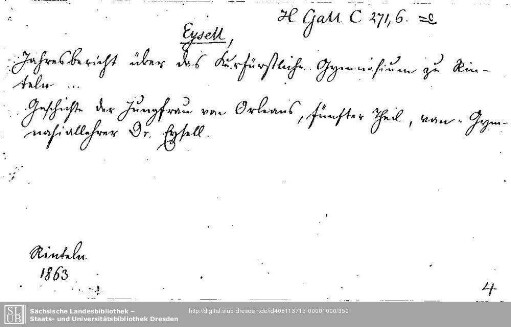 H Gall C 271,6.
Eysell,
Jahresbericht über das Kurfürstliche Gymnasium zu Rin-
teln ...
Geschichte der Jungfrau von Orleans, fünfter Theil, von Gym-
nasiallehrer Dr. Eysell.
Rinteln
1863
4.
Sächsische Landesbibliothek –
Staats- und Universitätsbibliothek Dresden